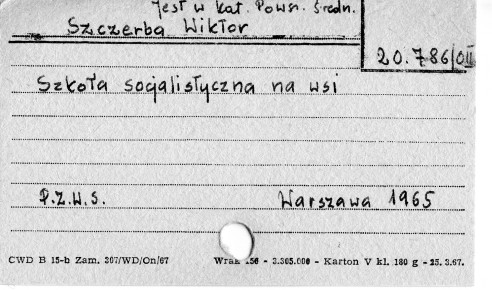 Jest w kat. Powsz. Średn.
Szczerba Wiktor
20.786/OŚ
Szkoła socjalistyczna na wsi
P.Z.W.S. Warszawa 1965
CWD B 15-b Zam. 307/WD/On/67 Wrak 156 - 2.305.000 - Karton V kl. 180 g - 25.3.67.